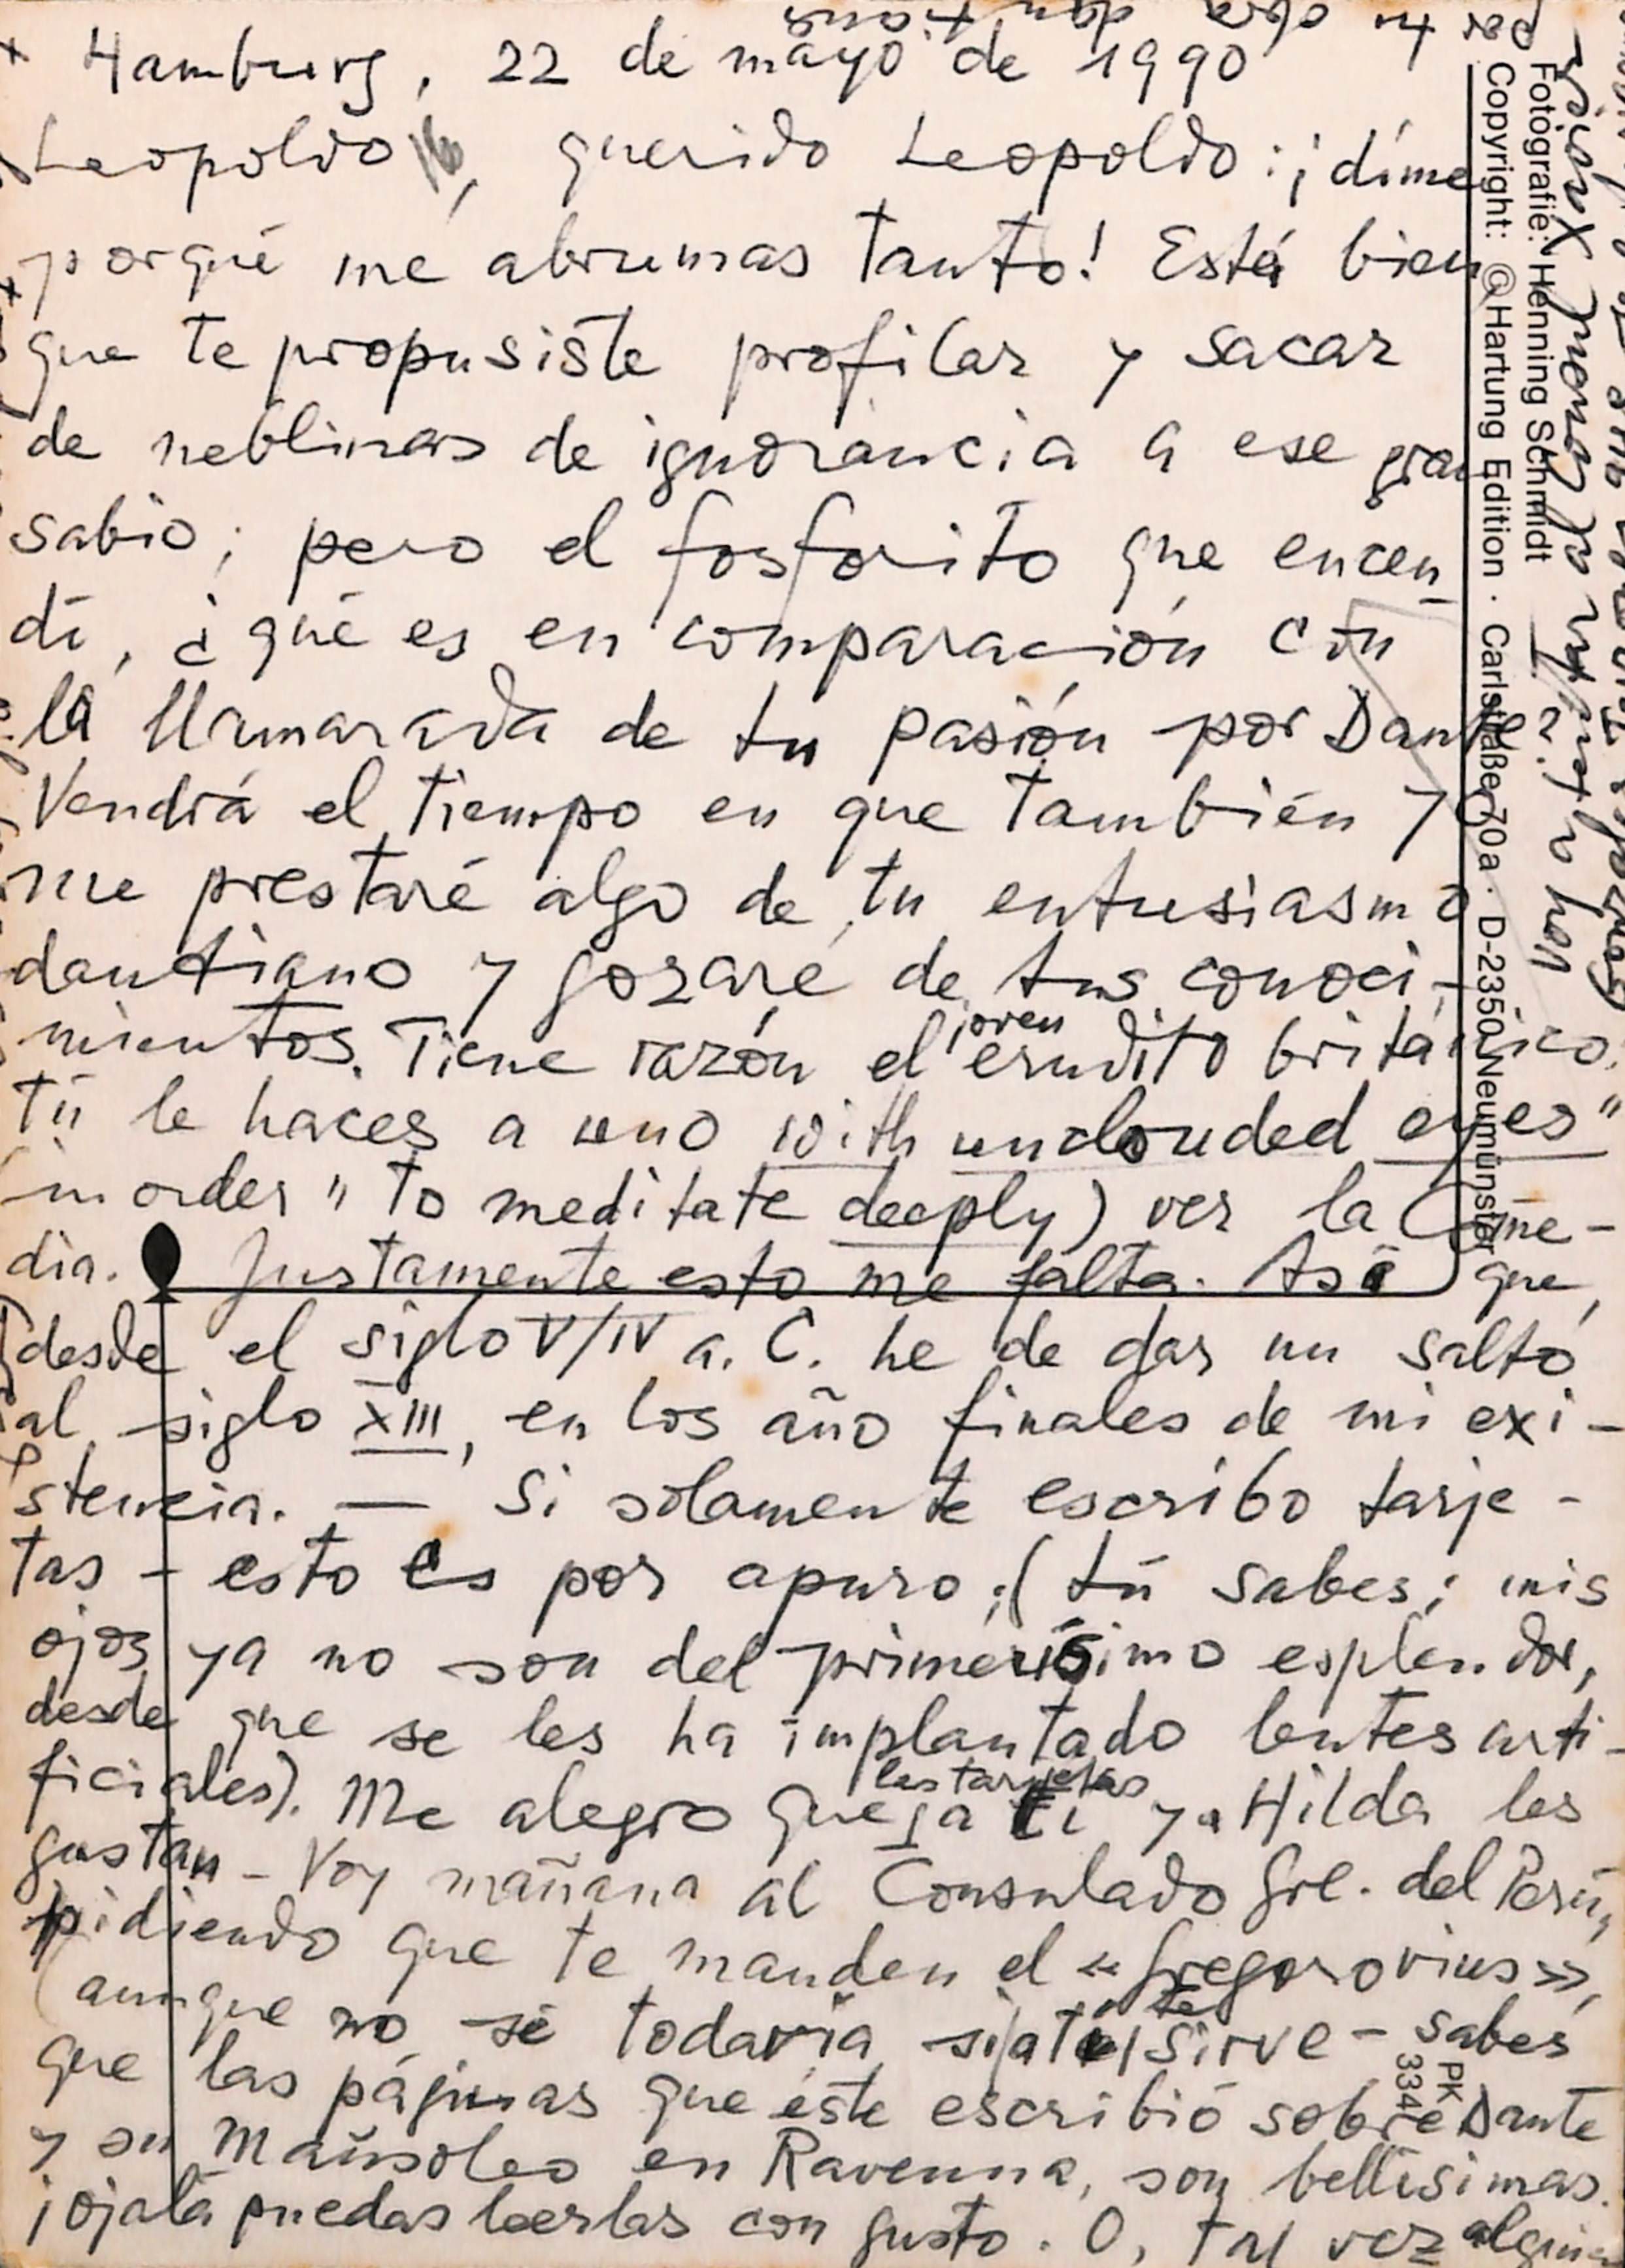 Hamburg, 22 de mayo de 1990
Leopoldo, querido Leopoldo: ¡díme
porqué me abrumas tanto! Está bien
que te propusiste profilar y sacar
de neblinas de ignorancia a ese gran
sabio; pero el fosforito que encen-
dí, ¿qué es en comparación con
la llamarada de tu pasión por Dante
Vendrá el tiempo en que también yo
me prestaré algo de tu entusiasmo
dantiano y gozaré de tus conoci-
mientos. Tiene razón el joven erudito británico:
Tú le haces a uno with unclouded eyes"
in order " to meditate deeply) ver la Come-
dia. Justamente esto me falta. Así que,
desde el siglo V/IV a. C. he de dar un salto
al siglo XIII, en los año finales de mi exi-
stencia. — Si solamente escribo tarje-
tas - esto es por apuro; (tú sabes; mis
ojos ya no son del primerísimo esplendor,
desde que se les ha implantado lentes arti-
ficiales). Me alegro que las tarjetas a ti y a Hilda les
gustan - Voy mañana al Consulado Grl. del Perú,
pidiendo que te manden el «Gregorovius»,
(aunque no sé todavía si a tí te sirve - sabes
que las páginas que éste escribió sobre Dante
y su Mausoleo en Ravenna, son bellísimas.
¡Ojalá puedas leerlas con gusto. O, tal vez alguien
por tu obra dantiana
Fotografie: Henning Schmidt
Copyright: © Hartung Edition · Carlstraße 70a · D-2350 Neumünster
PK 334